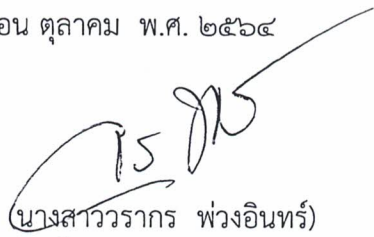 อน ตุลาคม พ.ศ. ๒๕๖๔
(นางสาววรากร พ่วงอินทร์)